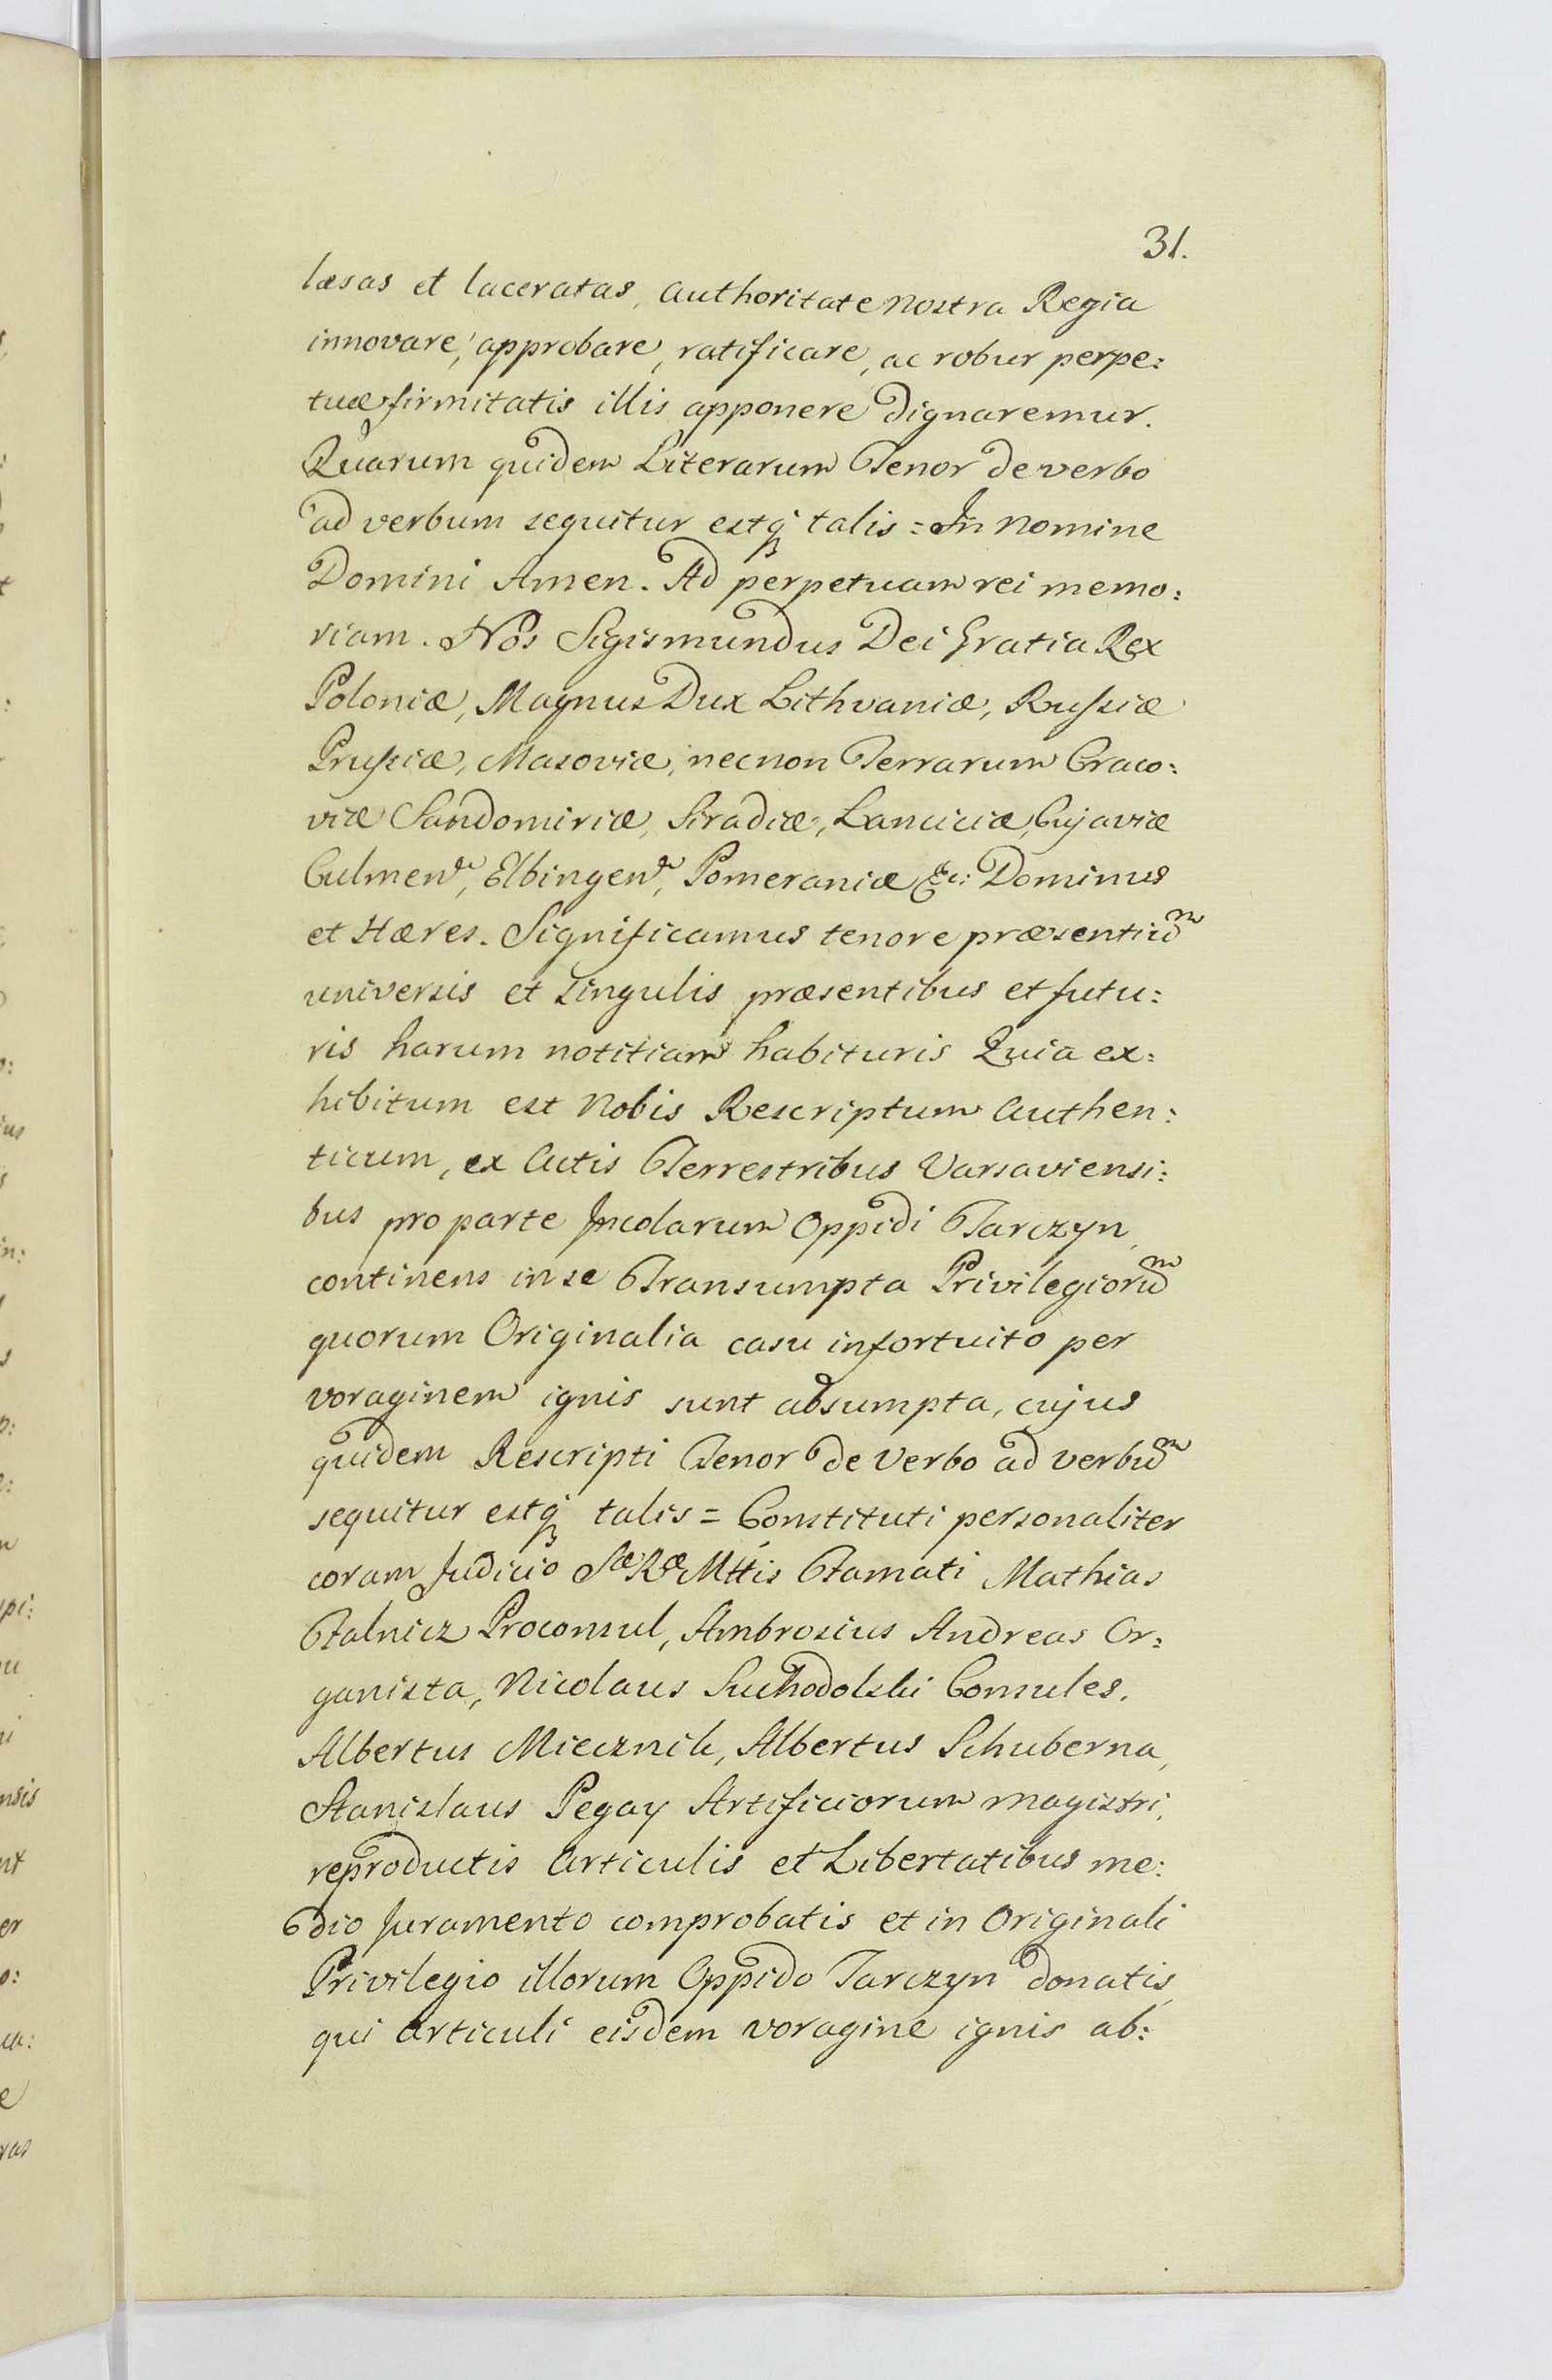 31.
læsas et laceratas, authoritate nostra Regia
innovare, approbare, ratificare, ac robur perpe:
tuæ firmitatis illis apponere dignaremur.
Quarum quidem Literarum Tenor de verbo
ad verbum sequitur estq talis = In nomine
Domini Amen. Ad perpetuam rei memo:
riam. Nos Sigismundus Dei Gratia Rex
Poloniæ, Magnus Dux Lithvaniæ, Russiæ
Prussiæ, Masoviæ, necnon Terrarum Craco:
viæ Sandomiriæ, Siradiæ, Lanciciæ, Cujaviæ
Culmen, Elbingen, Pomeraniæ &c: Dominus
et Hæres. Significamus tenore præsentium
universis et singulis præsentibus et futu:
ris harum notitiam habituris Quia ex:
hibitum est Nobis Rescriptum Authen:
ticum, ex Actis Terrestribus Varsaviensi:
bus pro parte Incolarum Oppidi Tarczyn,
continens in se Transumpta Privilegiorum
quorum Originalia casu infortuito per
voraginem ignis sunt absumpta, cujus
quidem Rescripti Tenor de Verbo ad verbum
sequitur estq talis = Constituti personaliter
coram Judicio Sæ Ræ Mttis Famati Mathias
Falnicz Proconsul, Ambrosius Andreas Or:
ganista, Nicolaus Suchodolski Consules.
Albertus Miecznik, Albertus Schuberna,
Stanislaus Pegay Artificiorum magistri,
reproductis Articulis et Libertatibus me:
dio Juramento comprobatis et in Originali
Privilegio illorum Oppido Tarczyn donatis,
qui Articuli eisdem voragine ignis ab: